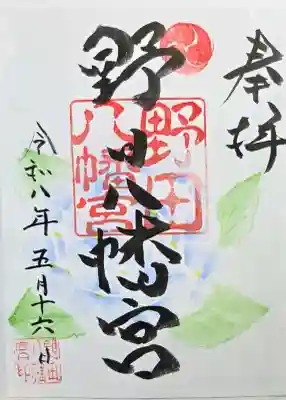 奉拝
野田八幡宮
野田
八幡宮
令和八年五月十六日